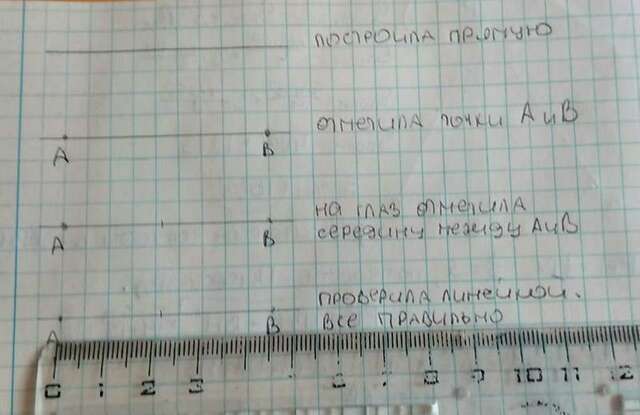 построила прямую
отметила точки А и В
А В
на глаз отметила
середину между А и В
А В
проверила линейкой.
все правильно
А В
0 1 2 3 6 7 8 9 10 11 12